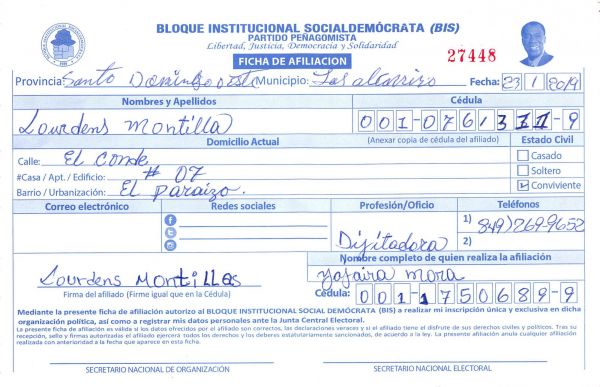 BLOQUE INSTITUCIONAL SOCIALDEMÓCRATA (BIS)
PARTIDO PEÑAGOMISTA
Libertad, Justicia, Democracia y Solidaridad
FICHA DE AFILIACION
27448
Provincia: Santo Domingo oeste Municipio: Los alcarrizos Fecha: 23 1 2019
Nombres y Apellidos Cédula
Lourdens Montilla 001-0761311-9
Domicilio Actual (Anexar copia de cédula del afiliado) Estado Civil
Calle: El Conde Casado
#Casa / Apt. / Edificio: # 07 Soltero
Barrio / Urbanización: El paraizo. Conviviente
Correo electrónico Redes sociales Profesión/Oficio Teléfonos
1) 849) 269-9652
Dijitadora 2)
Nombre completo de quien realiza la afiliación
Lourdens Montillas Yafaira Mora
Firma del afiliado (Firme igual que en la Cédula) Cédula: 001-1750689-9
Mediante la presente ficha de afiliación autorizo al BLOQUE INSTITUCIONAL SOCIAL DEMÓCRATA (BIS) a realizar mi inscripción única y exclusiva en dicha
organización política, así como a registrar mis datos personales ante la Junta Central Electoral.
La presente ficha de afiliación es válida si los datos ofrecidos por el afiliado son correctos, las declaraciones veraces y si el afiliado tiene el disfrute de sus derechos civiles y políticos. Tras su
recepción, sello y firmas autorizadas el afiliado ejercerá todos los derechos y los deberes estatutariamente sancionados, de acuerdo a la ley. La presente afiliación anula cualquier afiliación
realizada con anterioridad a la fecha que aparece en esta ficha.
SECRETARIO NACIONAL DE ORGANIZACIÓN SECRETARIO NACIONAL ELECTORAL